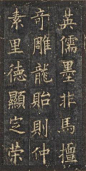 英儒墨非馬擅
奇雕龍貽則仲
素里德顯定榮